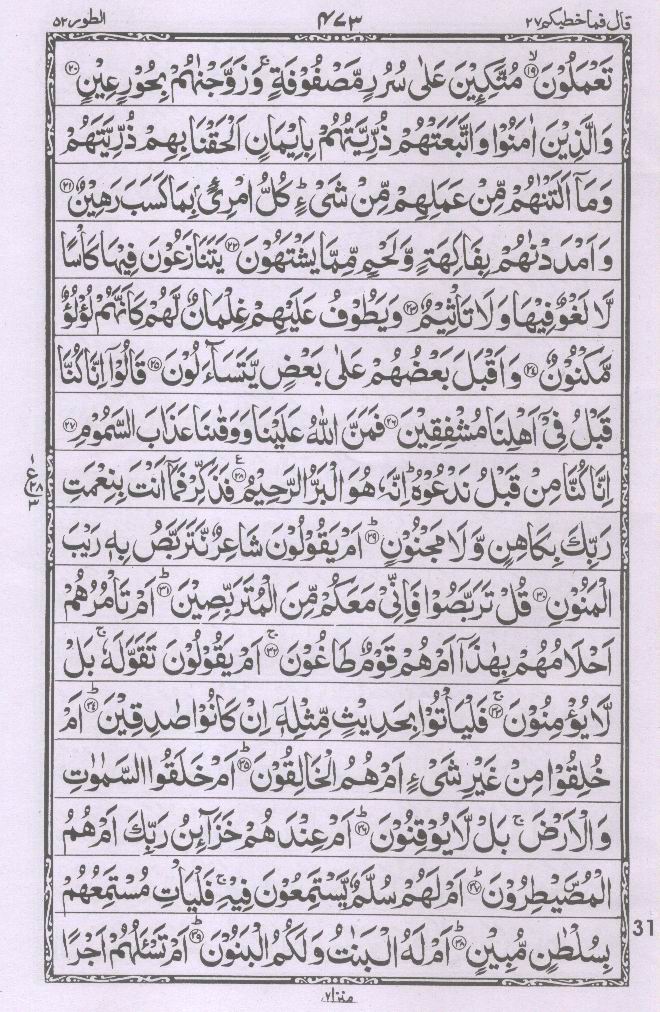 قال فما خطبكم ٢٧ ٤٧٣ الطور ٥٢
تَعْمَلُوْنَ ۙ﴿۱۹﴾ مُتَّكِـِٕیْنَ عَلٰی سُرُرٍ مَّصْفُوْفَةٍ ۚ وَ زَوَّجْنٰهُمْ بِحُوْرٍ عِیْنٍ ﴿۲۰﴾
وَ الَّذِیْنَ اٰمَنُوْا وَ اتَّبَعَتْهُمْ ذُرِّیَّتُهُمْ بِاِیْمَانٍ اَلْحَقْنَا بِهِمْ ذُرِّیَّتَهُمْ
وَ مَاۤ اَلَتْنٰهُمْ مِّنْ عَمَلِهِمْ مِّنْ شَیْءٍ ؕ كُلُّ امْرِیًٴۢ بِمَا كَسَبَ رَهِیْنٌ ﴿۲۱﴾
وَ اَمْدَدْنٰهُمْ بِفَاكِهَةٍ وَّ لَحْمٍ مِّمَّا یَشْتَهُوْنَ ﴿۲۲﴾ یَتَنَازَعُوْنَ فِیْهَا كَاْسًا
لَّا لَغْوٌ فِیْهَا وَ لَا تَاْثِیْمٌ ﴿۲۳﴾ وَ یَطُوْفُ عَلَیْهِمْ غِلْمَانٌ لَّهُمْ كَاَنَّهُمْ لُؤْلُؤٌ
مَّكْنُوْنٌ ﴿۲۴﴾ وَ اَقْبَلَ بَعْضُهُمْ عَلٰی بَعْضٍ یَّتَسَآءَلُوْنَ ﴿۲۵﴾ قَالُوْۤا اِنَّا كُنَّا
قَبْلُ فِیْۤ اَهْلِنَا مُشْفِقِیْنَ ﴿۲۶﴾ فَمَنَّ اللّٰهُ عَلَیْنَا وَ وَقٰىنَا عَذَابَ السَّمُوْمِ ﴿۲۷﴾
اِنَّا كُنَّا مِنْ قَبْلُ نَدْعُوْهُ ؕ اِنَّهٗ هُوَ الْبَرُّ الرَّحِیْمُ ﴿۲۸﴾ فَذَكِّرْ فَمَاۤ اَنْتَ بِنِعْمَتِ
١ ع ٢٨ ٣
رَبِّكَ بِكَاهِنٍ وَّ لَا مَجْنُوْنٍ ؕ﴿۲۹﴾ اَمْ یَقُوْلُوْنَ شَاعِرٌ نَّتَرَبَّصُ بِهٖ رَیْبَ
الْمَنُوْنِ ﴿۳۰﴾ قُلْ تَرَبَّصُوْا فَاِنِّیْ مَعَكُمْ مِّنَ الْمُتَرَبِّصِیْنَ ؕ﴿۳۱﴾ اَمْ تَاْمُرُهُمْ
اَحْلَامُهُمْ بِهٰذَاۤ اَمْ هُمْ قَوْمٌ طَاغُوْنَ ۚ﴿۳۲﴾ اَمْ یَقُوْلُوْنَ تَقَوَّلَهٗ ۚ بَلْ
لَّا یُؤْمِنُوْنَ ۚ﴿۳۳﴾ فَلْیَاْتُوْا بِحَدِیْثٍ مِّثْلِهٖۤ اِنْ كَانُوْا صٰدِقِیْنَ ؕ﴿۳۴﴾ اَمْ
خُلِقُوْا مِنْ غَیْرِ شَیْءٍ اَمْ هُمُ الْخَالِقُوْنَ ؕ﴿۳۵﴾ اَمْ خَلَقُوا السَّمٰوٰتِ
وَ الْاَرْضَ ۚ بَلْ لَّا یُوْقِنُوْنَ ؕ﴿۳۶﴾ اَمْ عِنْدَهُمْ خَزَآىِٕنُ رَبِّكَ اَمْ هُمُ
الْمُصَۜیْطِرُوْنَ ؕ﴿۳۷﴾ اَمْ لَهُمْ سُلَّمٌ یَّسْتَمِعُوْنَ فِیْهِ ۚ فَلْیَاْتِ مُسْتَمِعُهُمْ
بِسُلْطٰنٍ مُّبِیْنٍ ؕ﴿۳۸﴾ اَمْ لَهُ الْبَنٰتُ وَ لَكُمُ الْبَنُوْنَ ؕ﴿۳۹﴾ اَمْ تَسْـَٔلُهُمْ اَجْرًا
31
منزل ٧